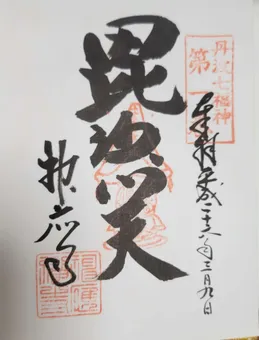 丹波七福神
第一
奉拝 平成二十六年三月九日
毘沙門天
神応寺